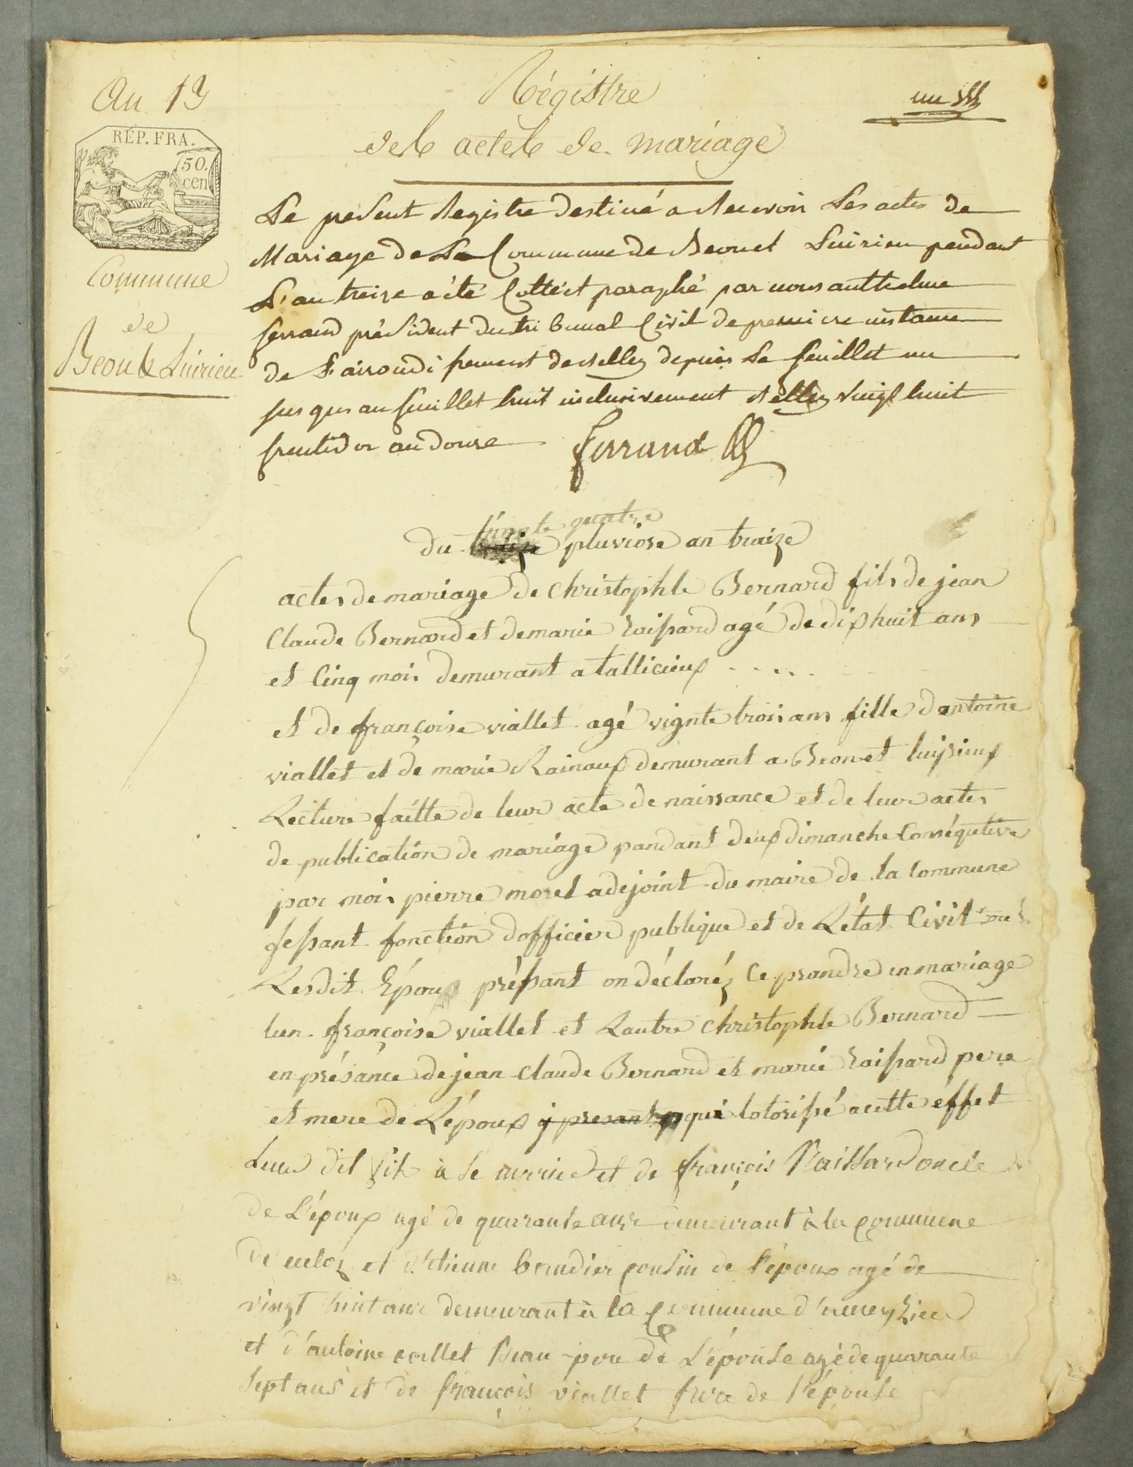 An 13
Régistre
des actes de mariage
un
RÉP. FRA.
50.
cen
Commune
de
Beon & Luirieu
Le présent Registre destiné a Recevoir Les actes de
Mariage de La Commune de Beon et Luirieu pendant
L'an treize a été Cotté et paraphé par nous anthelme
ferrand président du tribunal Civil de premiere instance
de L'airondissement de Belley depuis Le feuillet un
jusques au feuillet huit inclusivement Belley vingt huit
fructidor an douze
ferrand
vingte quatre
du pluviose an traize
actes de mariage de christophle Bernard fils de jean
Claude Bernard et de marie Raissard agé de dix huit ans
et Cinq mois demurant a tallicieux
et de françoise viallet agé vignte trois ans fille dantoine
viallet et de marie Rainaux demurant a Beon et luisieux
Lecture faitte de leur acte de naissance et de leur actes
de publication de mariage pandant deux dimanche Conséqutive
par mois pierre morel adejoint du maire de la Commune
fessant fonction dofficier publique et de Létat Civil
Lesdit Époux préssant on déclaréz Ce prandre en mariage
lun françoise viallet et Lautre christophle Bernard
en présance de jean Claude Bernard et marie Raissard pere
et mere de Lépoux y presant qui lotorissé a cette éffet
Leur dit fils à se marier et de françois Raissard oncle
de L'époux agé de quarante ans demeurant à la commune
de culoz et d'étienne Caudier cousin de l'époux agé de
vingt huit ans demeurant à la Commune d'ameyzieu
et d'antoine collet Beau-pere de L'épouse agé de quarante
sept ans et de françois viallet frere de l'épouse